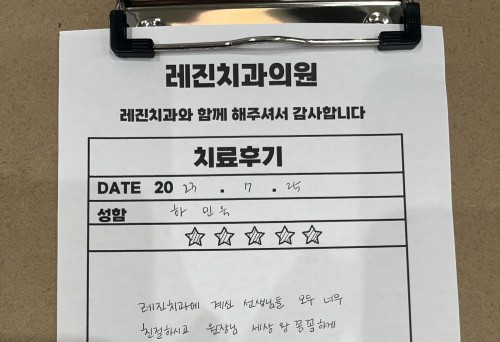 레진치과의원
레진치과와 함께 해주셔서 감사합니다
치료후기
DATE 20 23 . 7 . 25
성함 하 민 욱
레진치과에 계신 선생님들 모두 너무
친절하시고 원장님 세상 왕 꼼꼼하게